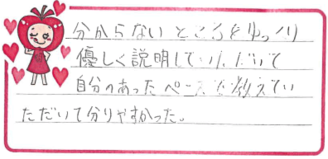 分からないところをゆっくり
優しく説明していただいて
自分のあったペースで教えてい
ただいて分りやすかった。